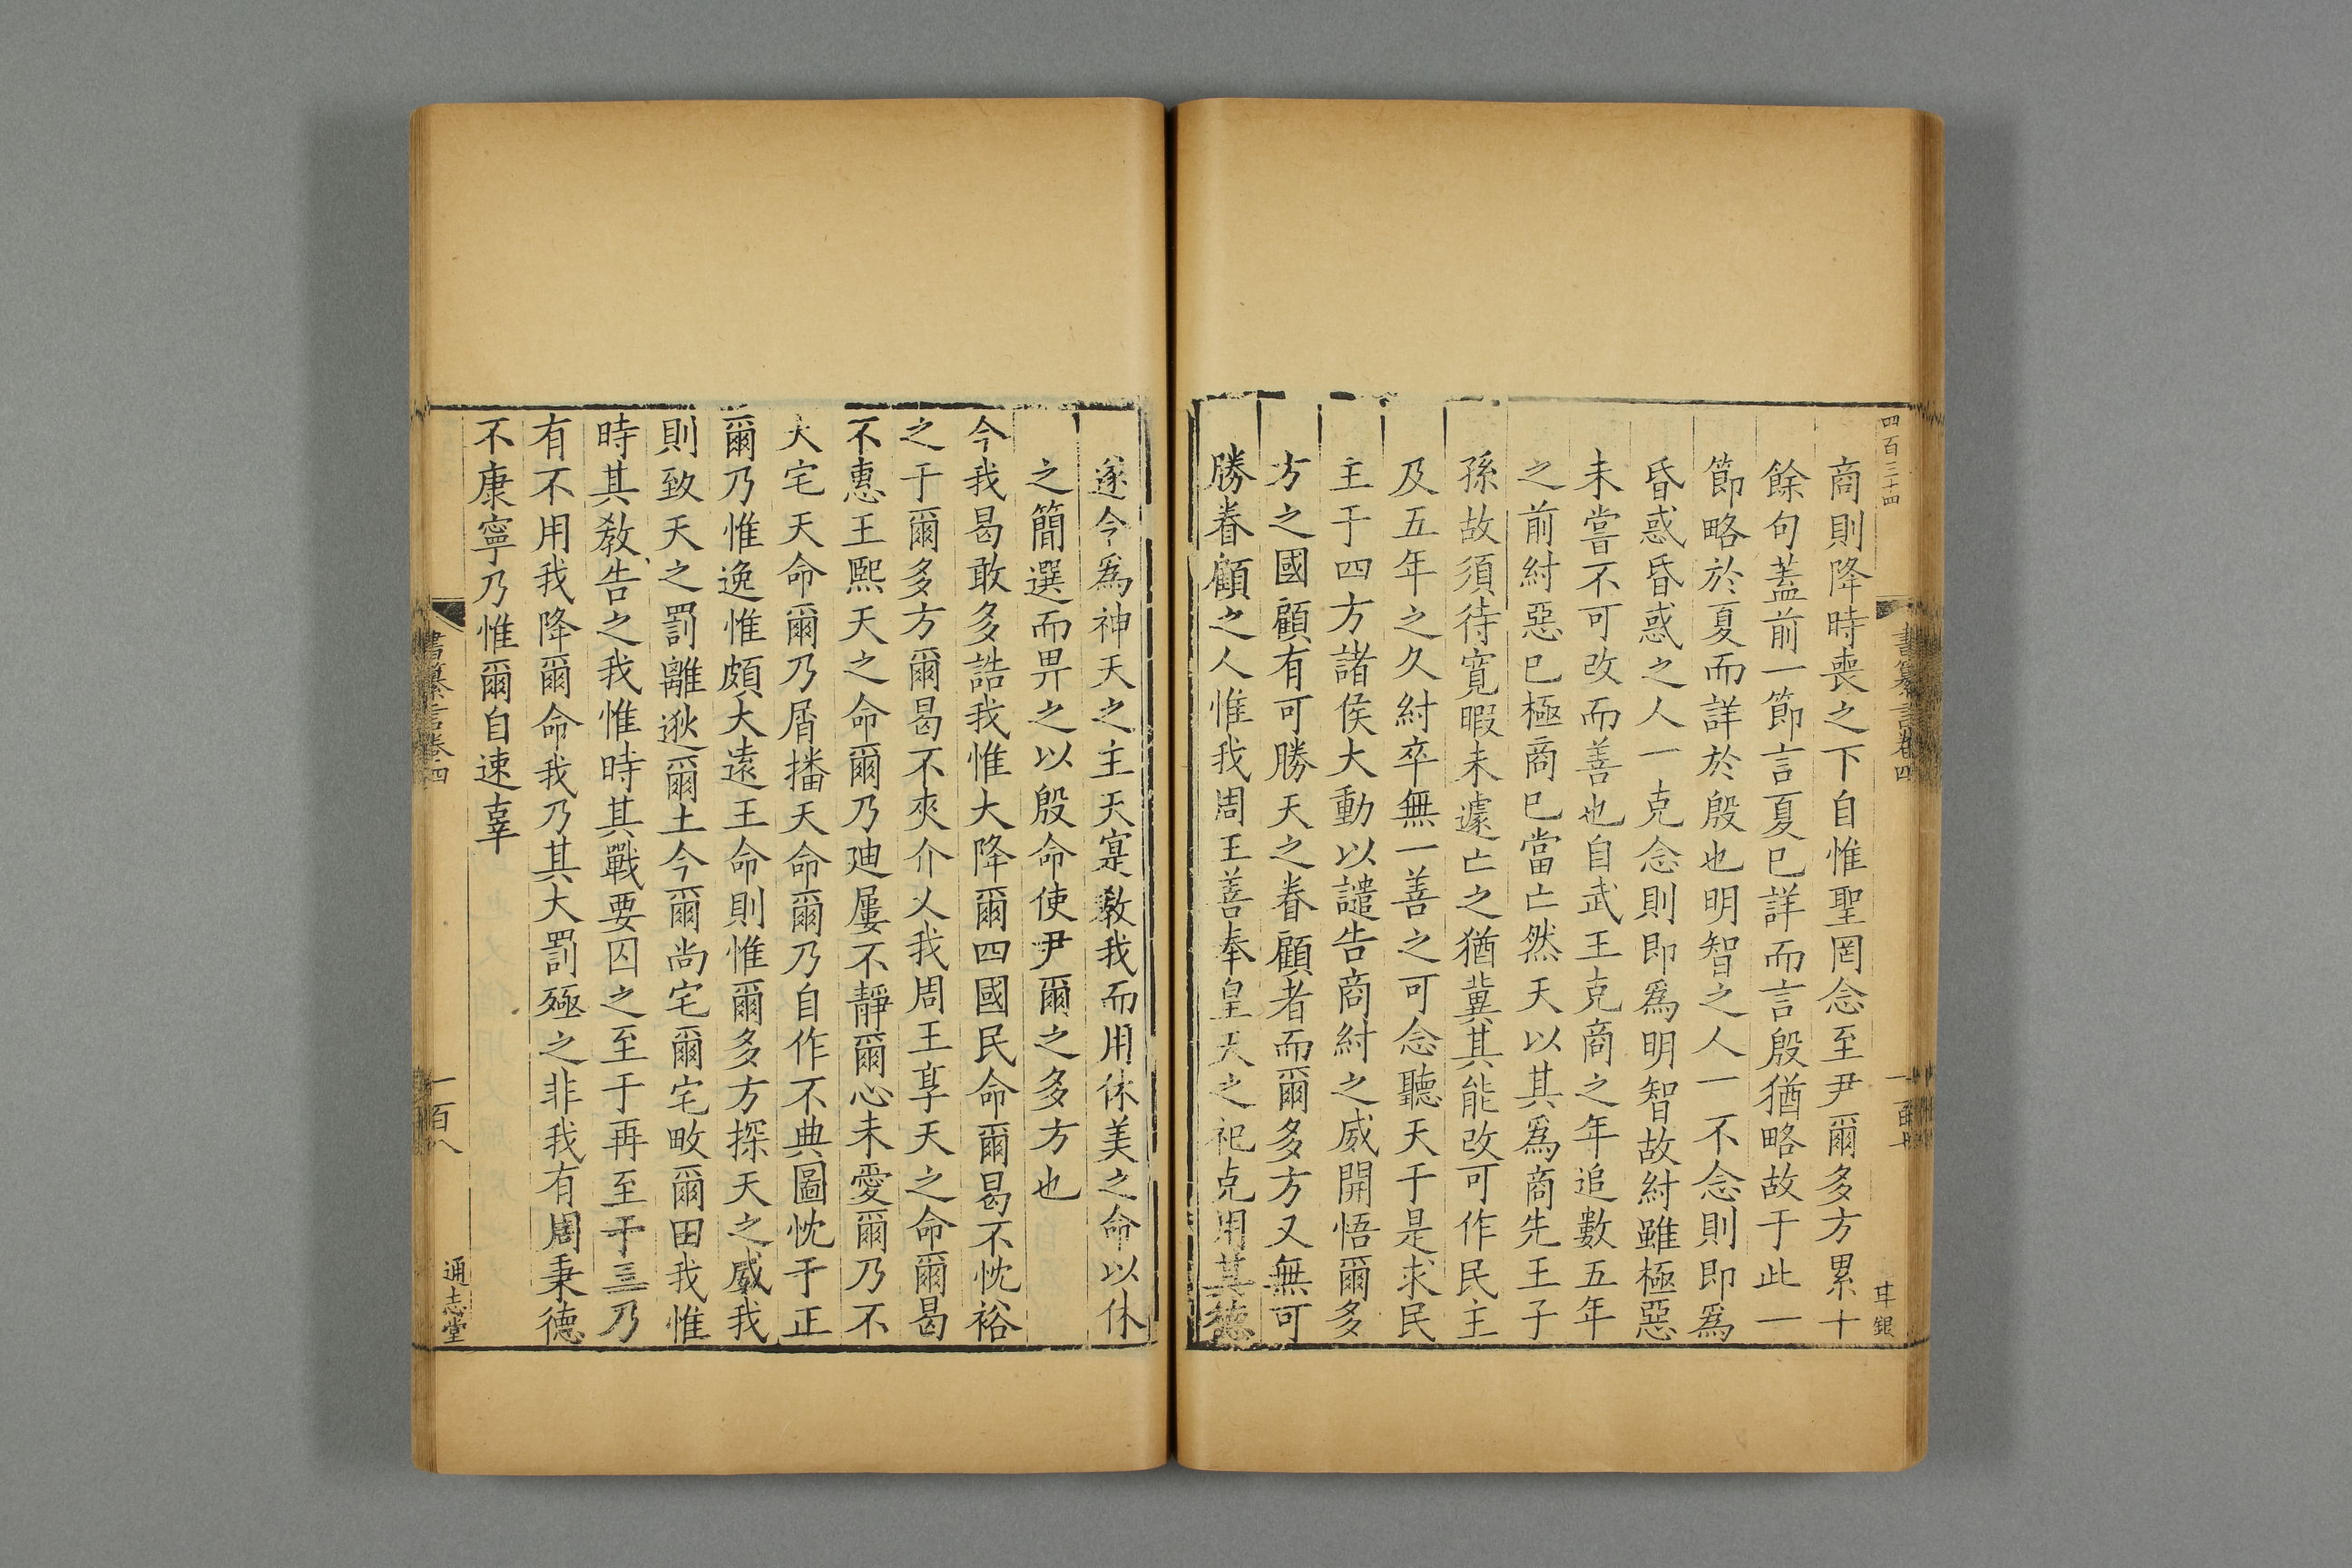 四百三十四
商則降時喪之下自惟聖罔念至尹爾多方累十
餘句蓋前一節言夏已詳而言殷猶略故于此一
節略於夏而詳於殷也明智之人一不念則即爲
昏惑昏惑之人一克念則即爲明智故紂雖極惡
未嘗不可改而善也自武王克商之年追數五年
之前紂惡已極商已當亡然天以其爲商先王子
孫故須待寛暇未遽亡之猶兾其能改可作民主
及五年之久紂卒無一善之可念聽天于是求民
主于四方諸侯大動以譴告商紂之威開悟爾多
方之國顧有可勝天之眷顧者而爾多方又無可
勝眷顧之人惟我周王善奉皇天之祀克用其德
遂令爲神天之主天寔敎我而用休美之命以休
之簡選而畀之以殷命使尹爾之多方也
今我曷敢多誥我惟大降爾四國民命爾曷不忱裕
之于爾多方爾曷不夾介乂我周王享天之命爾曷
不惠王熙天之命爾乃廸屢不靜爾心未愛爾乃不
大宅天命爾乃屑播天命爾乃自作不典圖忱于正
爾乃惟逸惟頗大遠王命則惟爾多方探天之威我
則致天之罰離逖爾土今爾尚宅爾宅畋爾田我惟
時其敎告之我惟時其戰要囚之至于再至于三乃
有不用我降爾命我乃其大罰殛之非我有周秉德
不康寧乃惟爾自速辜
書纂言卷四
一百八
通志堂